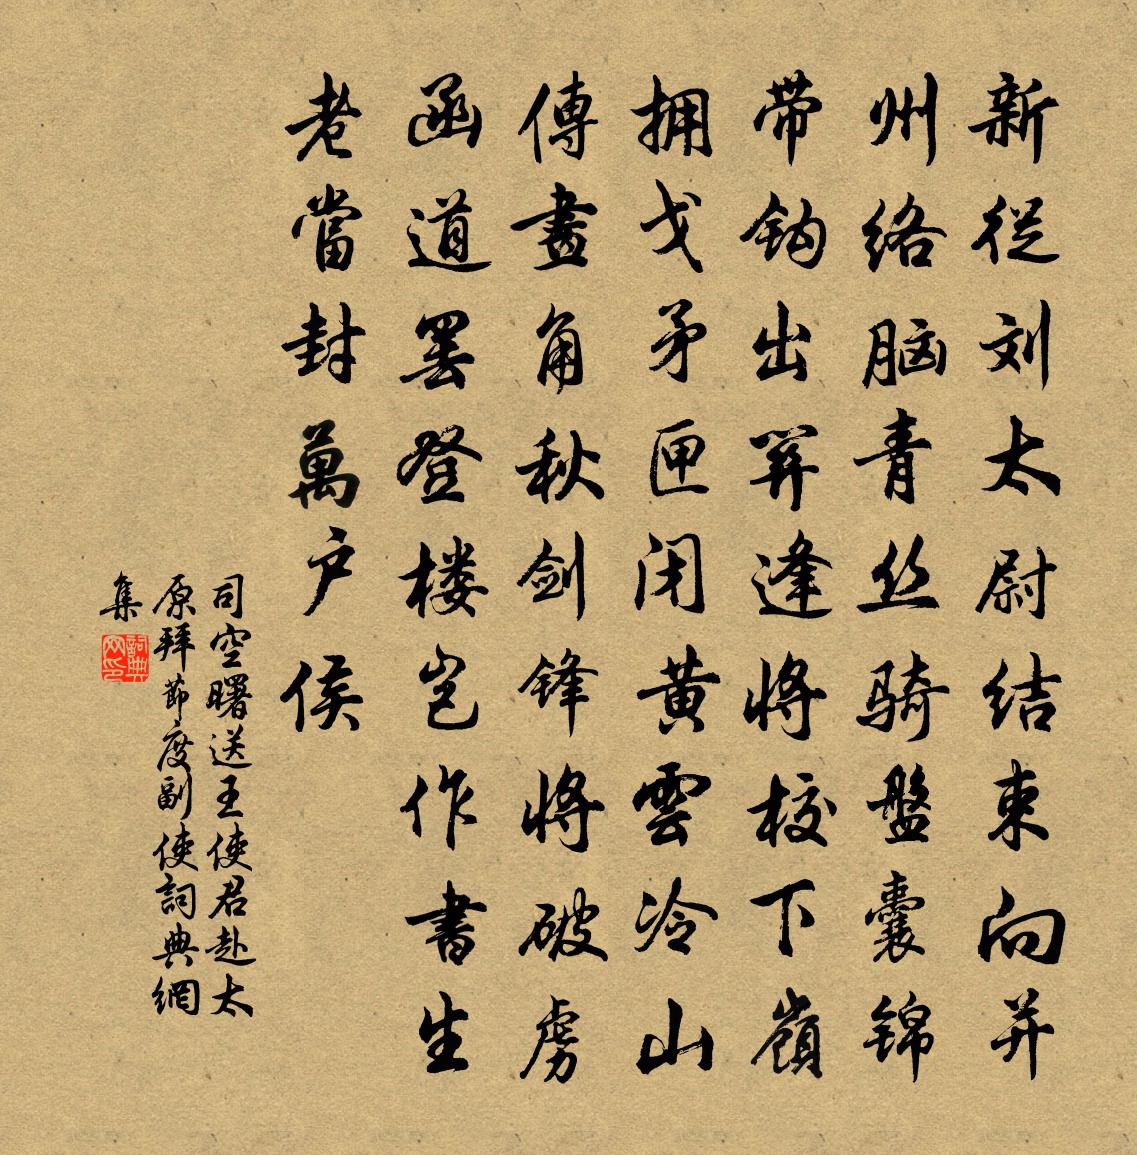 新從刘太尉结束向并
州络脑青丝骑盤囊锦
带钩出關逢将校下嶺
拥戈矛匣闭黄雲冷山
傳畫角秋剑锋将破虏
函道罢登楼岂作書生
老當封萬户侯
司空曙送王使君赴太
原拜節度副使詞典網
集
詞典
网印